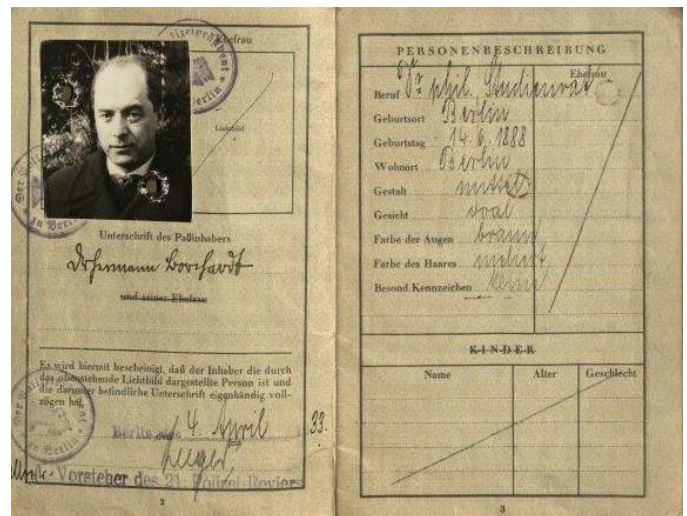 Ehefrau
Lichtbild
Unterschrift des Paßinhabers
Dr Hermann Borchardt
und seiner Ehefrau
Es wird hiermit bescheinigt, daß der Inhaber die durch
das obenstehende Lichtbild dargestellte Person ist und
die darunter befindliche Unterschrift eigenhändig voll-
zogen hat.
Berlin den 4. April 33.
Vorsteher des 21. Polizei-Reviers
2
PERSONENBESCHREIBUNG
Ehefrau
Beruf Dr phil. Studienrat
Geburtsort Berlin
Geburtstag 14.6.1888
Wohnort Berlin
Gestalt mittel
Gesicht oval
Farbe der Augen braun
Farbe des Haares meliert
Besond. Kennzeichen keine
KINDER
Name Alter Geschlecht
3